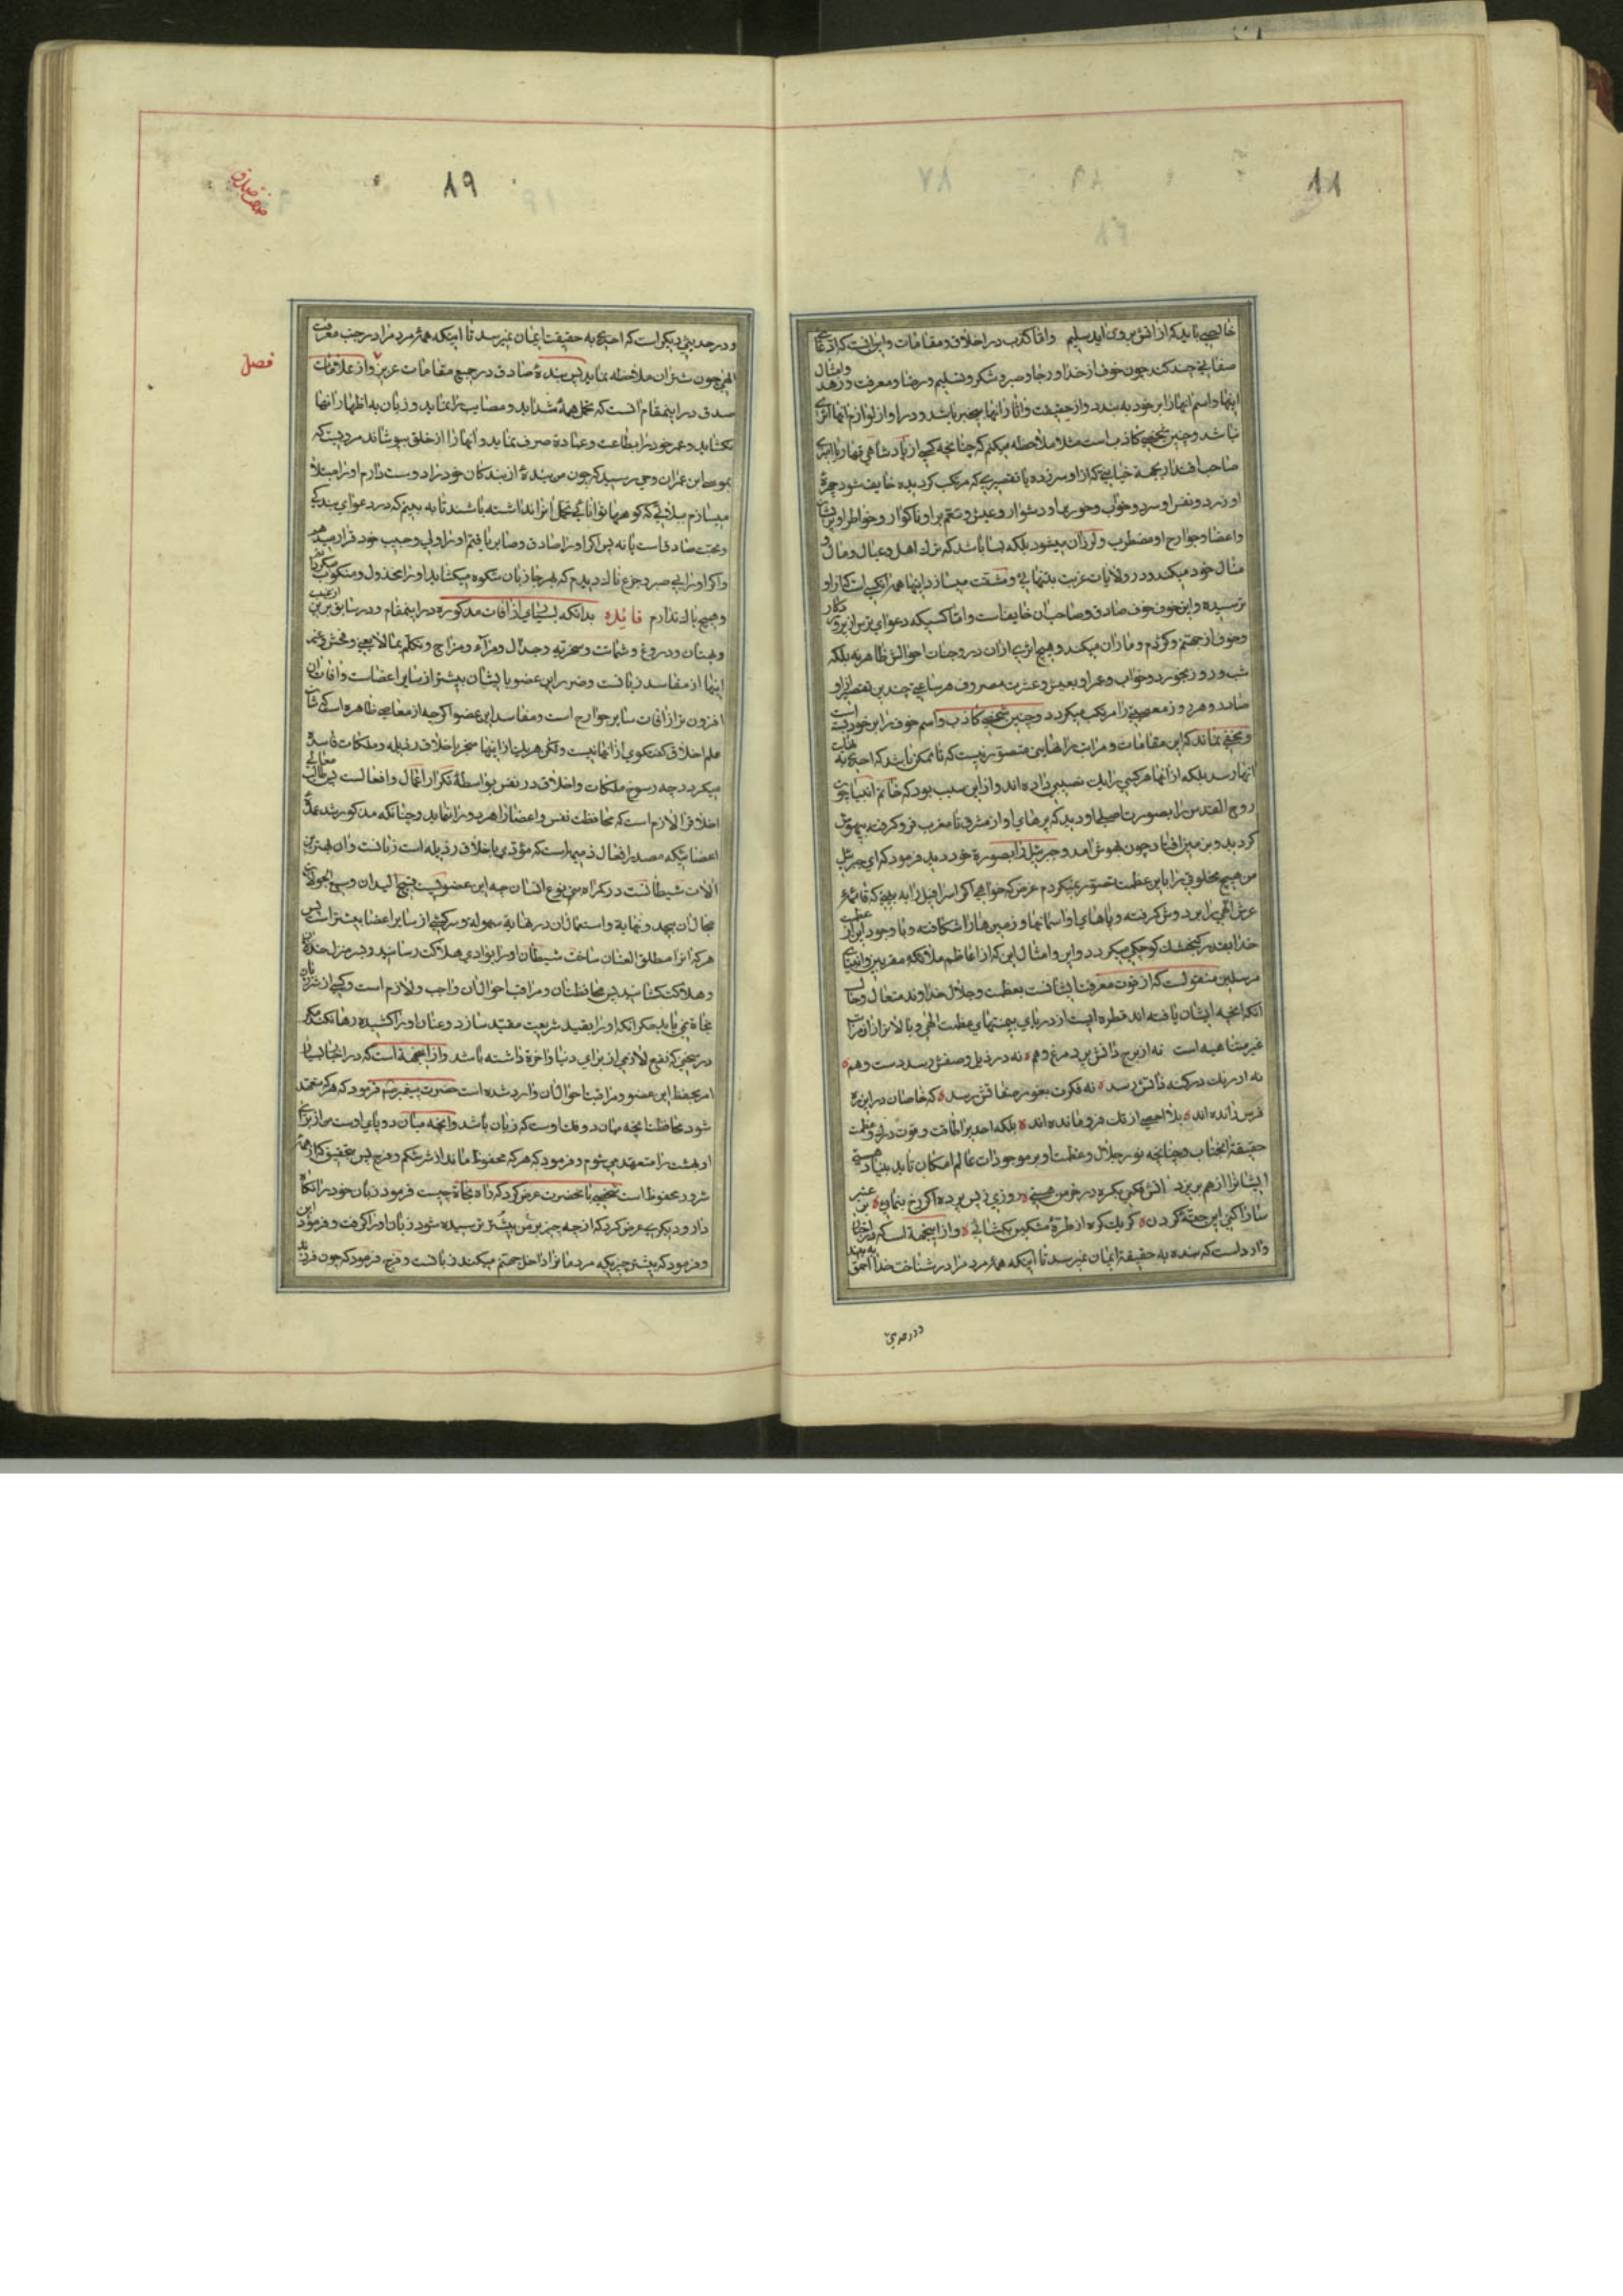 خالصی باید که از آتش بروی آید سلیم و اما کذب در اخلاق و مقامات و این آنست که ادعای
صفاتی چند کند چون خوف از خدا و رجا و صبر و شکر و تسلیم و رضا و معرفت و زهد وامثال
اینها و اسم آنها را بر خود به بندد و از حقیقت و آثار آنها بیخبر باشد و در او از لوازم آنها اثری
نباشد و چنین شخصی کاذب است مثلا ملاحظه میکنم که چنانچه کسی از پادشاهی قهار یا امیری
صاحب اقتدار بجهة خیانتی که از او سر زده یا تقصیری که مرتکب گردیده خایف شود چهرهٔ
او زرد و نفس او سرد و خواب و خور بر او دشوار و عیش و تنعم بر او ناگوار و خواطر او پریشان
و اعضا و جوارح او مضطرب و لرزان میشود بلکه بسا باشد که ترک اهل و عیال و مال و
منال خود میکند و در ولایات غربت بتنهایی و مشقت میسازد اینها همه از کسی است که از او
ترسیده و این خوف خوف صادق و صاحب آن خایف است و اما کسیکه دعوای ترس از پروردگار
و خوف از جهنم و کژدم و ماران میکند و هیچ اثری از آن در وجنات احوالش ظاهر نه بلکه
شب و روز بخورد و خواب و عمر او بعیش و عشرت مصروف هر ساعتی چندین تقصیر از او
صادر و هر روز معصیتی را مرتکب میگردد و چنین شخصی کاذب و اسم خوف را بر خود بسته است
و مخفی نماند که این مقامات و مراتب را نهایتی متصور نیست که تا ممکن باشد که احدی به نهایت
آنها رسد بلکه از آنها هر کسی را یک نصیبی داده‌اند و از این سبب بود که خاتم انبیا چون
روح القدس را بصورت اصلی او دید که پرهای او از مشرق تا مغرب فرو گرفته بیهوش
گردید و بر زمین افتاد چون بهوش آمد و جبرئیل را بصورة خود دید فرمود که ای جبرئیل
من هیچ مخلوقی را باین عظمت تصور نمیکردم عرض که خواهی اگر اسرافیل را به بینی که قائمهٔ
عرش الهی را بر دوش گرفته و پاهای او آسمانها و زمین‌ها را شکافته و با وجود این از عظمت
خدا بقدر گنجشک کوچکی میگردد و این و امثال این که از اعاظم ملائکهٔ مقربین و انبیای
مرسلین منقولست که از قوت معرفت ایشانست بعظمت و جلال خداوند متعال و حال
آنکه آنچه ایشان یافته‌اند قطره ایست از دریای بیمنتهای عظمت الهی و بالاتر از آن مراتب
غیر متناهیه است نه از برج ذاتش پرد مرغ وهم ه نه در ذیل وصفش رسد دست وهم ه
نه ادراک در کنه ذاتش رسد ه نه فکرت بغور صفاتش رسد ه که خاصان در این ره
فرس رانده‌اند ه بلا احصی از تک فرو مانده‌اند ه بلکه احدیرا طاقت و قوت درک و عظمت
حقیقة آنجناب و چنانچه نور جلال و عظمت او بر موجودات عالم امکان تابد بنیاد هستی
ایشانرا از هم بریزد آتش فکنی یکره در خرمن هستی ه روزی ز پس پرده اگر رخ بنمایی ه عنبر بن
سارا کنی این حقهٔ گردن ه گر یک گره از طرهٔ مشکین بگشائی ه و از اینجهة است که در اخبار
وارد است که بنده به حقیقة ایمان نمیرسد تا اینکه همهٔ مردم را در شناخت خدا احمق به بیند
ودر حدیثی
ضد صدق
فصل
و در حدیثی دیگر است که احدی به حقیقت ایمان نمیرسد تا اینکه همهٔ مردم را در جنب معرفت
الهی چون شتران ملاحظه نماید پس بندهٔ صادق در جمیع مقامات عزیز و از علامات
صدق در این مقام آنست که تحمل همهٔ شداید و مصایب را نماید و زبان به اظهار آنها
نگشاید و عمر خود را بطاعت و عبادة صرف نماید و آنها را از خلق بپوشاند مرویست که
بموسی ابن عمران وحی رسید که چون من بندهٔ از بندگان خود را دوست دارم او را مبتلا
میسازم ببلائی که کوهها توانائی تحمل آنرا نداشته باشند تا به بینم که در دعوای بندگی
و محبت صادقست یا نه پس اگر او را صادق و صابر یافتم او را ولی و حبیب خود قرار میدهم
و اگر او را بی صبر و جزع ناک دیدم که بهر جا زبان شکوه میگشاید او را مخذول و منکوب میگردانم
و هیچ باک ندارم فائده بدانکه بسیای از آفات مذکوره در این مقام و در سابق بر این از غیبت
و بهتان و دروغ و شماتت و سخریه و جدال و مراء و مزاح و تکلم بما لا یعنی و فحش و غیر
اینها از مفاسد زبانست و ضرر این عضو بایشان بیشتر از سایر اعضاست و آفات آن
افزون تر از آفات سایر جوارح است و مفاسد این عضو اگر چه از معاصی ظاهره است که شأن
علم اخلاق گفتگوی از آنها نیست ولکن هر یک از اینها منجر باخلاق رذیله و ملکات فاسده
میگردد چه رسوخ ملکات و اخلاق در نفس بواسطهٔ تکرار اعمال و افعالست پس طالب معالی
اخلاق را لازم است که محافظت نفس و اعضا را هر دو را نماید و چنانکه مذکور شد عمدهٔ
اعضائیکه مصدر افعال ذمیمه است که مؤدی باخلاق رذیله است زبانست و آن بهترین
آلات شیطانست در گمراه سیی نوع انسان چه این عضویست فسیح المیدان وسیع الجولان
مجال آن بیحد و نهایة و استعمال آن در نهایة سهولة و سرکشی از سایر اعضا بیشتر است پس
هر که آنرا مطلق العنان ساخت شیطان او را بوادی هلاکت رسانید و بسر منزل خذلان
و هلاکت کشانید پس محافظت آن و مراقب احوال آن واجب و لازم است و کسی از شر زبان
نجاة نمی یابد مگر آنکه او را بقید شریعت مقید سازد و عنان او را کشیده رها نکند مگر
در سخنی که نفع لازمی از برای دنیا و آخرة داشته باشد و از اینجهة است که در اخبار بسیار
امر بحفظ این عضو و مراقبت احوال آن وارد شده است حضرت پیغمبر ص فرمود که هر که متعهد
شود محافظت آنچه میان دو فک اوست که زبان باشد و آنچه میان دو پای اوست من از برای
او بهشت را متعهد می شوم و فرمود که هر که محفوظ ماند از شر شکم و فرج پس بتحقیق که از همهٔ
شرور محفوظ است شخصی بآنحضرت عرض کرد که راه نجاة چیست فرمود زبان خود را نگاه
دار و دیگری عرض کرد که از چه چیز بر من بیشتر ترسیده شود زبان او را گرفت و فرمود این
و فرمود که بیشتر چیزیکه مردمانرا داخل جهنم میکند زبانست و فرج فرمود که چون فرزند